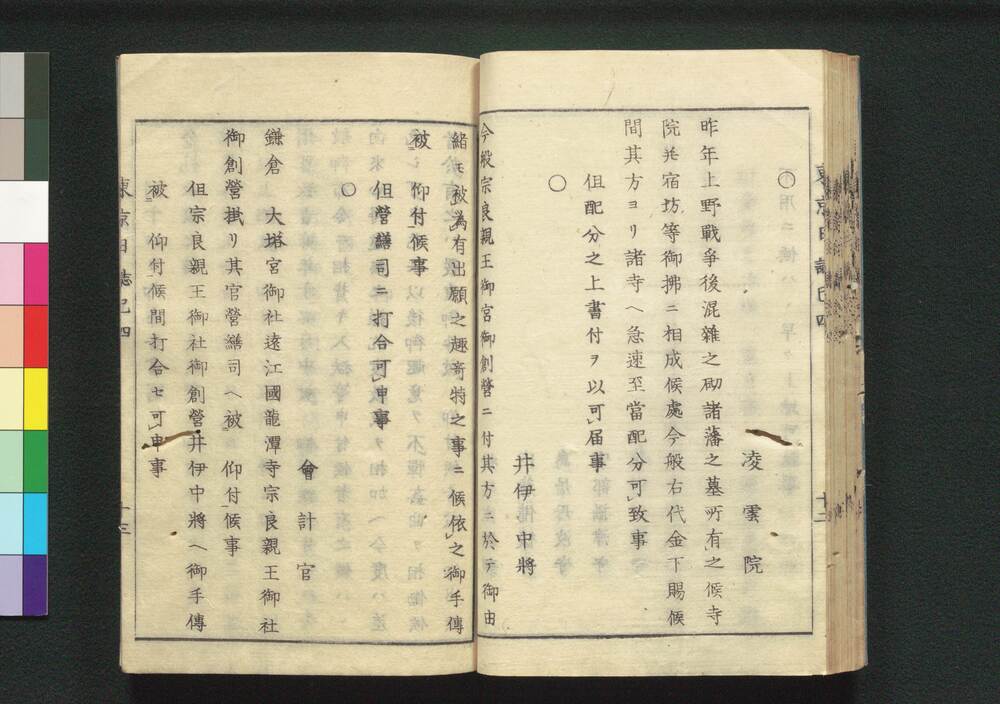 ○
凌雲院
昨年上野戰爭後混雜之砌諸藩之墓所有之候寺
院并宿坊等御拂ニ相成候處今般右代金下賜候
間其方ヨリ諸寺ヘ急速至當配分可致事
但配分之上書付ヲ以可届事
○
井伊中將
今般宗良親王御宮御創營ニ付其方ニ於テ御由
緒モ被為有出願之趣奇特之事ニ候依之御手傳
被仰付候事
但營繕司ニ打合可申事
○
會計官
鎌倉大塔宮御社遠江國龍潭寺宗良親王御社
御創營掛リ其官營繕司ヘ被仰付候事
但宗良親王御社御創營井伊中將ヘ御手傳
被仰付候間打合セ可申事
東京日誌己四
十三